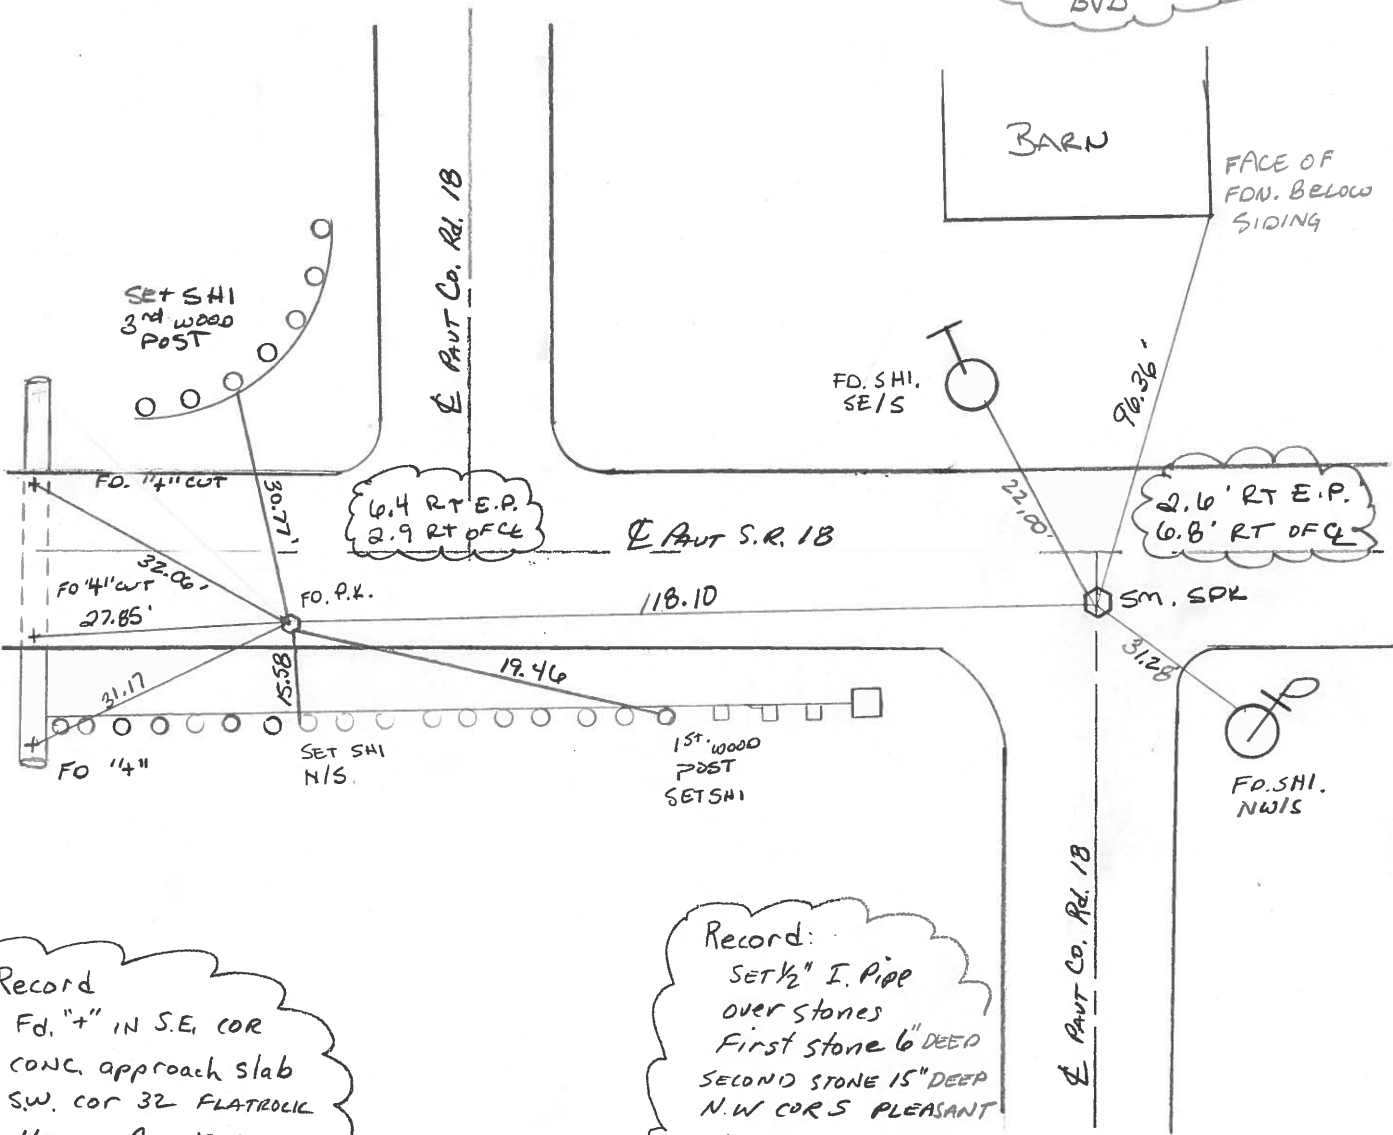 BVD
BARN
FACE OF
FDN. BELOW
SIDING
℄ PAVT Co. Rd. 18
SET SHI
3rd WOOD
POST
FD. SHI.
SE/S
96.36'
FD. "+" CUT
30.77'
6.4 RT E.P.
2.9 RT OF ℄
℄ PAVT S.R. 18
22.00'
2.6' RT E.P.
6.8' RT OF ℄
32.06'
FD "+" CUT
27.85'
FD. P.K.
118.10
SM. SPK
31.17
15.58
19.46
31.28
FD "+"
SET SHI
N/S.
1ST. WOOD
POST
SET SHI
FD. SHI.
NW/S
℄ PAVT Co. Rd. 18
Record
Fd. "+" IN S.E. COR
CONC. approach slab
S.W. cor 32 FLATROCK
Record:
SET 1/2" I. Pipe
over stones
First stone 6" DEEP
SECOND STONE 15" DEEP
N.W COR 5 PLEASANT